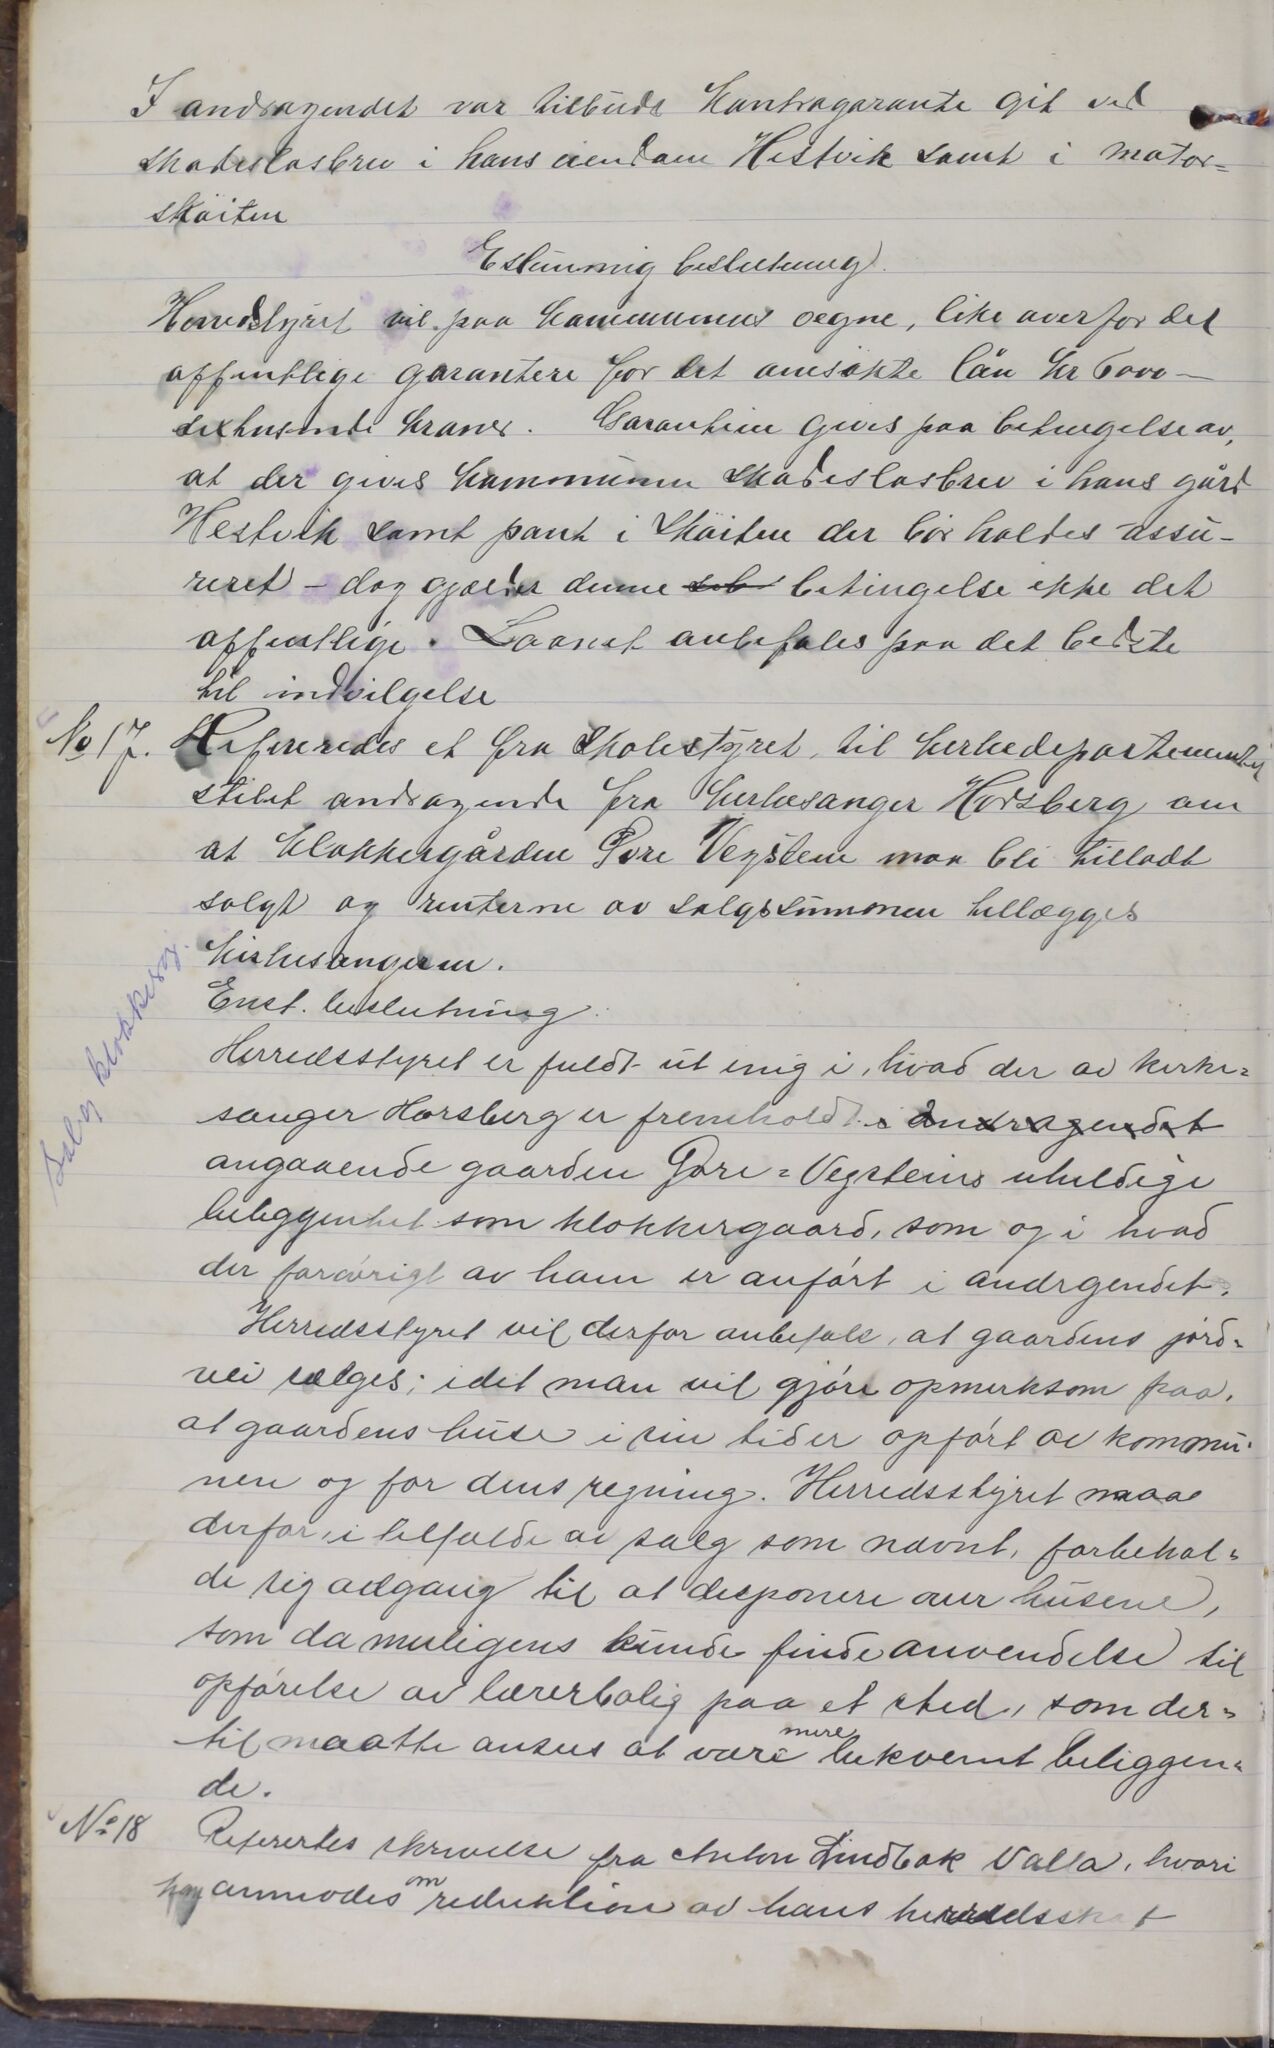 I andragendet var tilbudt kontragaranti git ved
skadeslosbrev i hans eiendom Hestvik samt i motor=
skøiten
Estimmig beslutning.
Herredstyret vil paa kommunens vegne, like overfor det
offentlige garantere for det ansøkte lån kr 6000 —
sextusinde kroner. Garantien gives paa betingelse av,
at der gives kommunen skadeslosbrev i hans gård
Hestvik samt pant i skøiten der bör holdes assu-
reret – dog gjælder denne betingelse ikke det
offentlige. Laanet anbefales paa det bedste
til indvilgelse
No 17. Refereredes et fra skolestyret, til kirkedepartementet
stilet andragende fra kirkesanger Horsberg om
at klokkergården Pore Vegstein maa bli tilladt
solgt og renterne av salgssummen tillægges
kirkesangeren.
Salg klokkerg.
Enst. beslutning.
Herredsstyret er fuldt ut enig i, hvad der av kirke=
sanger Horsberg er fremholdt i andragendet
angaaende gaarden Pore=Vegsteins uheldige
beliggenhet som klokkergaard, som og i hvad
der forøvrigt av ham er anført i andrgendet.
Herredsstyret vil derfor anbefale, at gaardens jord=
vei sælges; idet man vil gjøre opmerksom paa,
at gaardens huse i sin tid er opført av kommu-
nen og for dens regning. Herredsstyret maa
derfor, i tilfælde av salg som nævnt, forbehol=
de sig adgang til at disponere over husene,
som da muligens kunde finde anvendelse til
opførelse av lærerbolig paa et sted, som der=
til maatte ansees at være mere bekvemt beliggen=
de.
No 18 Referertes skrivelse fra Anton Lindbak Valla, hvori
han anmodes om reduktion av hans herredsskat